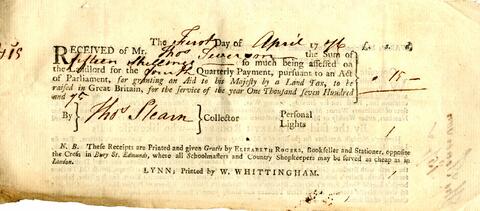 The First Day of April 1776 £. s. d.
RECEIVED of Mr. Thos. the Sum of
Fifteen Shillings so much being assessed on
the Landlord for the fourth Quarterly Payment, pursuant to an Act
of Parliament, for granting an Aid to his Majesty by a Land Tax, to be
raised in Great Britain, for the service of the year One Thousand Seven Hundred
and 75
15 —
By Thos Stearn Collector Personal
Lights
N. B. These Receipts are Printed and given Gratis by ELIZABETH ROGERS, Bookseller and Stationer, opposite
the Cross in Bury St. Edmunds, where all Schoolmasters and Country Shopkeepers may be served as cheap as in
London.
LYNN; Printed by W. WHITTINGHAM.